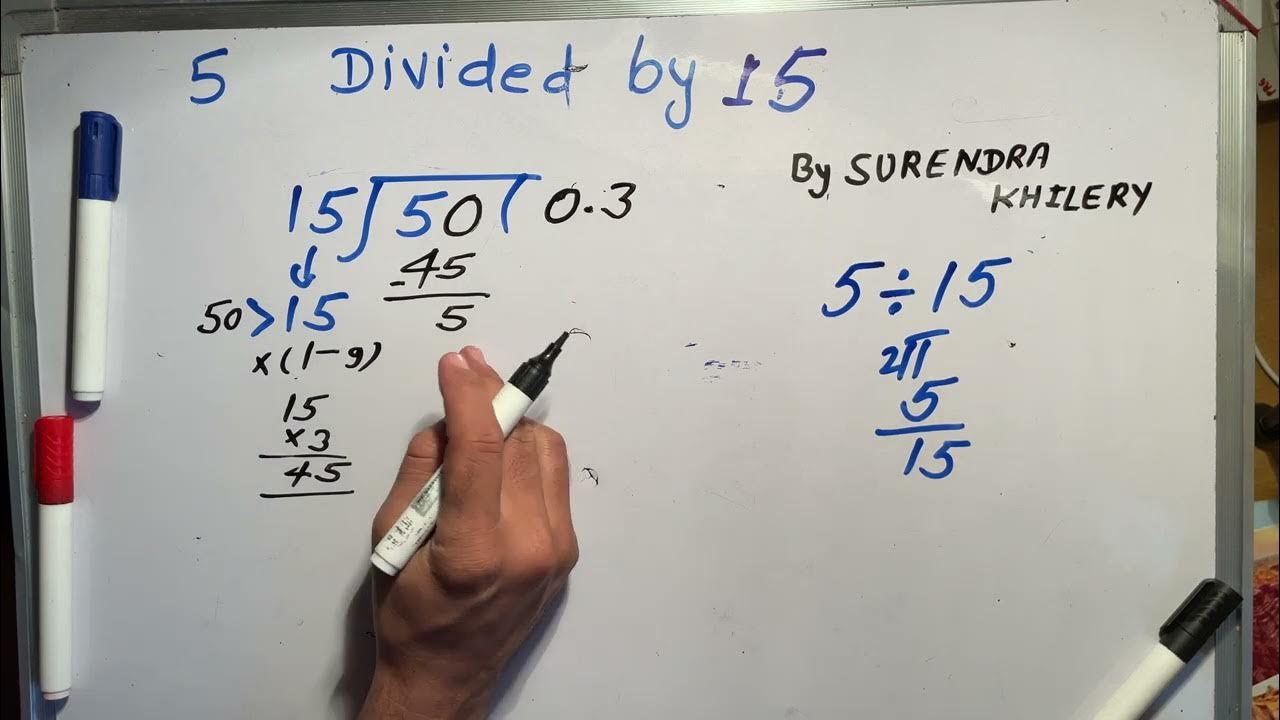 5 Divided by 15
By SURENDRA
KHILERY
15)50( 0.3
-45
5
50>15
×(1-9)
15
×3
45
5÷15
या
5
15